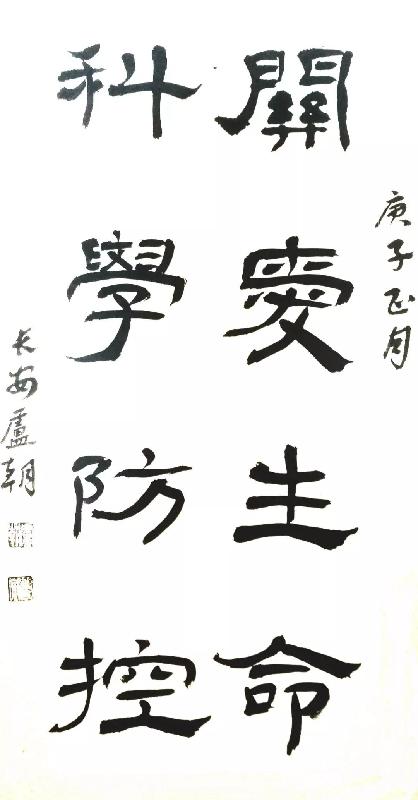 庚子正月
關愛生命
科學防控
长安盧朝